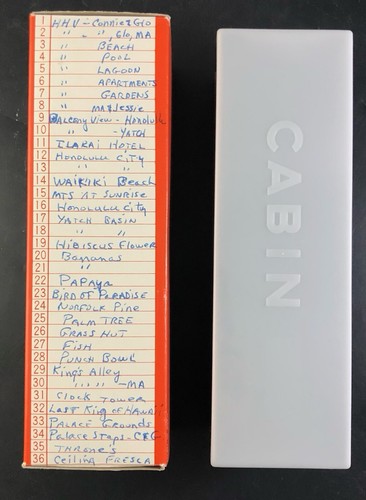 1 HHV - Connie & Glo
2 " " " , Glo, MA
3 " BEACH
4 " POOL
5 " LAGOON
6 " APARTMENTS
7 " GARDENS
8 " MA & Jessie
9 Balcony View - Honolulu
10 " - YATCH
11 ILAKAI HOTEL
12 Honolulu City
13 " "
14 WAIKIKI Beach
15 MTS AT SUNRISE
16 Honolulu City
17 YATCH BASIN
18 " "
19 HIBISCUS FLOWER
20 Bananas
21 "
22 PAPAYA
23 BIRD OF PARADISE
24 NORFOLK Pine
25 PALM TREE
26 GRASS HUT
27 FISH
28 PUNCH BOWL
29 King's Alley
30 " " " - MA
31 CLOCK TOWER
32 LAST King OF HAWAII
33 PALACE GROUNDS
34 Palace Steps -
35 THRONE'S
36 Ceiling FRESCA
CABIN